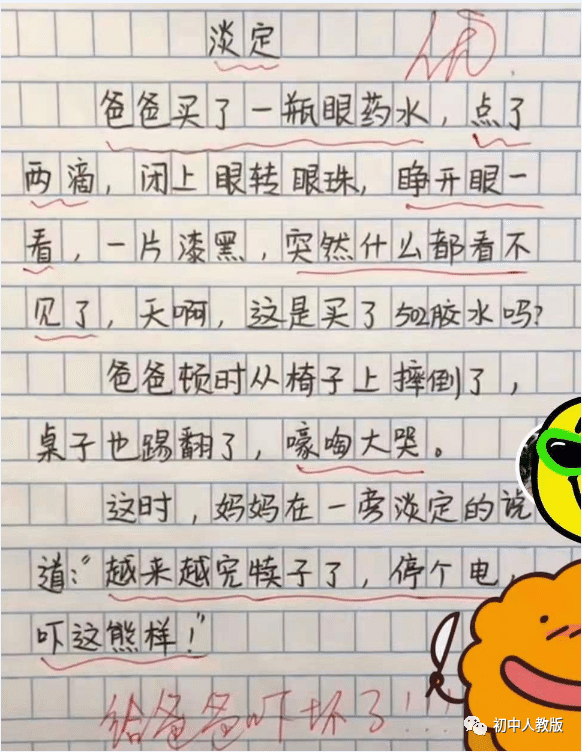 淡定
优
爸爸买了一瓶眼药水，点了
两滴，闭上眼转眼珠，睁开眼一
看，一片漆黑，突然什么都看不
见了，天啊，这是买了502胶水吗？
爸爸顿时从椅子上摔倒了，
桌子也踢翻了，嚎啕大哭。
这时，妈妈在一旁淡定的说
道：“越来越完犊子了，停个电，
吓这熊样！”
给爸爸吓坏了!!!
初中人教版